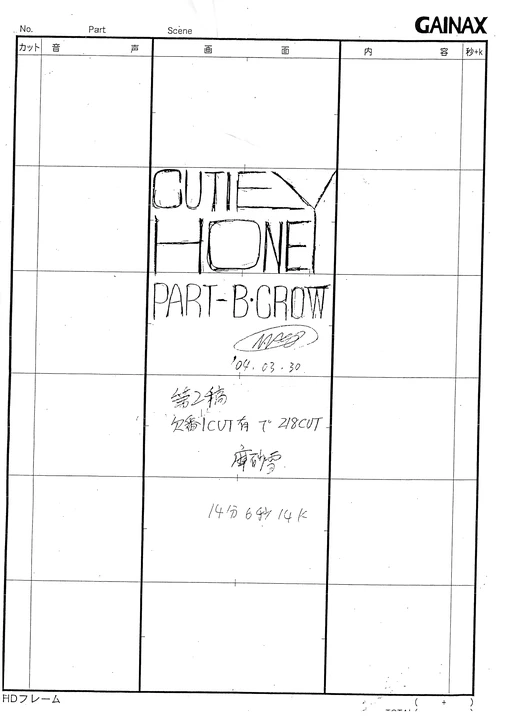 No. Part Scene GAINAX
カット 音 声 画 面 内 容 秒+k
CUTIE
HONEY
PART-B・CROW
'04.03.30
第2稿
欠番1CUT有で218CUT
麻砂雪
14分6秒14K
HDフレーム
( + )
TOTAL(